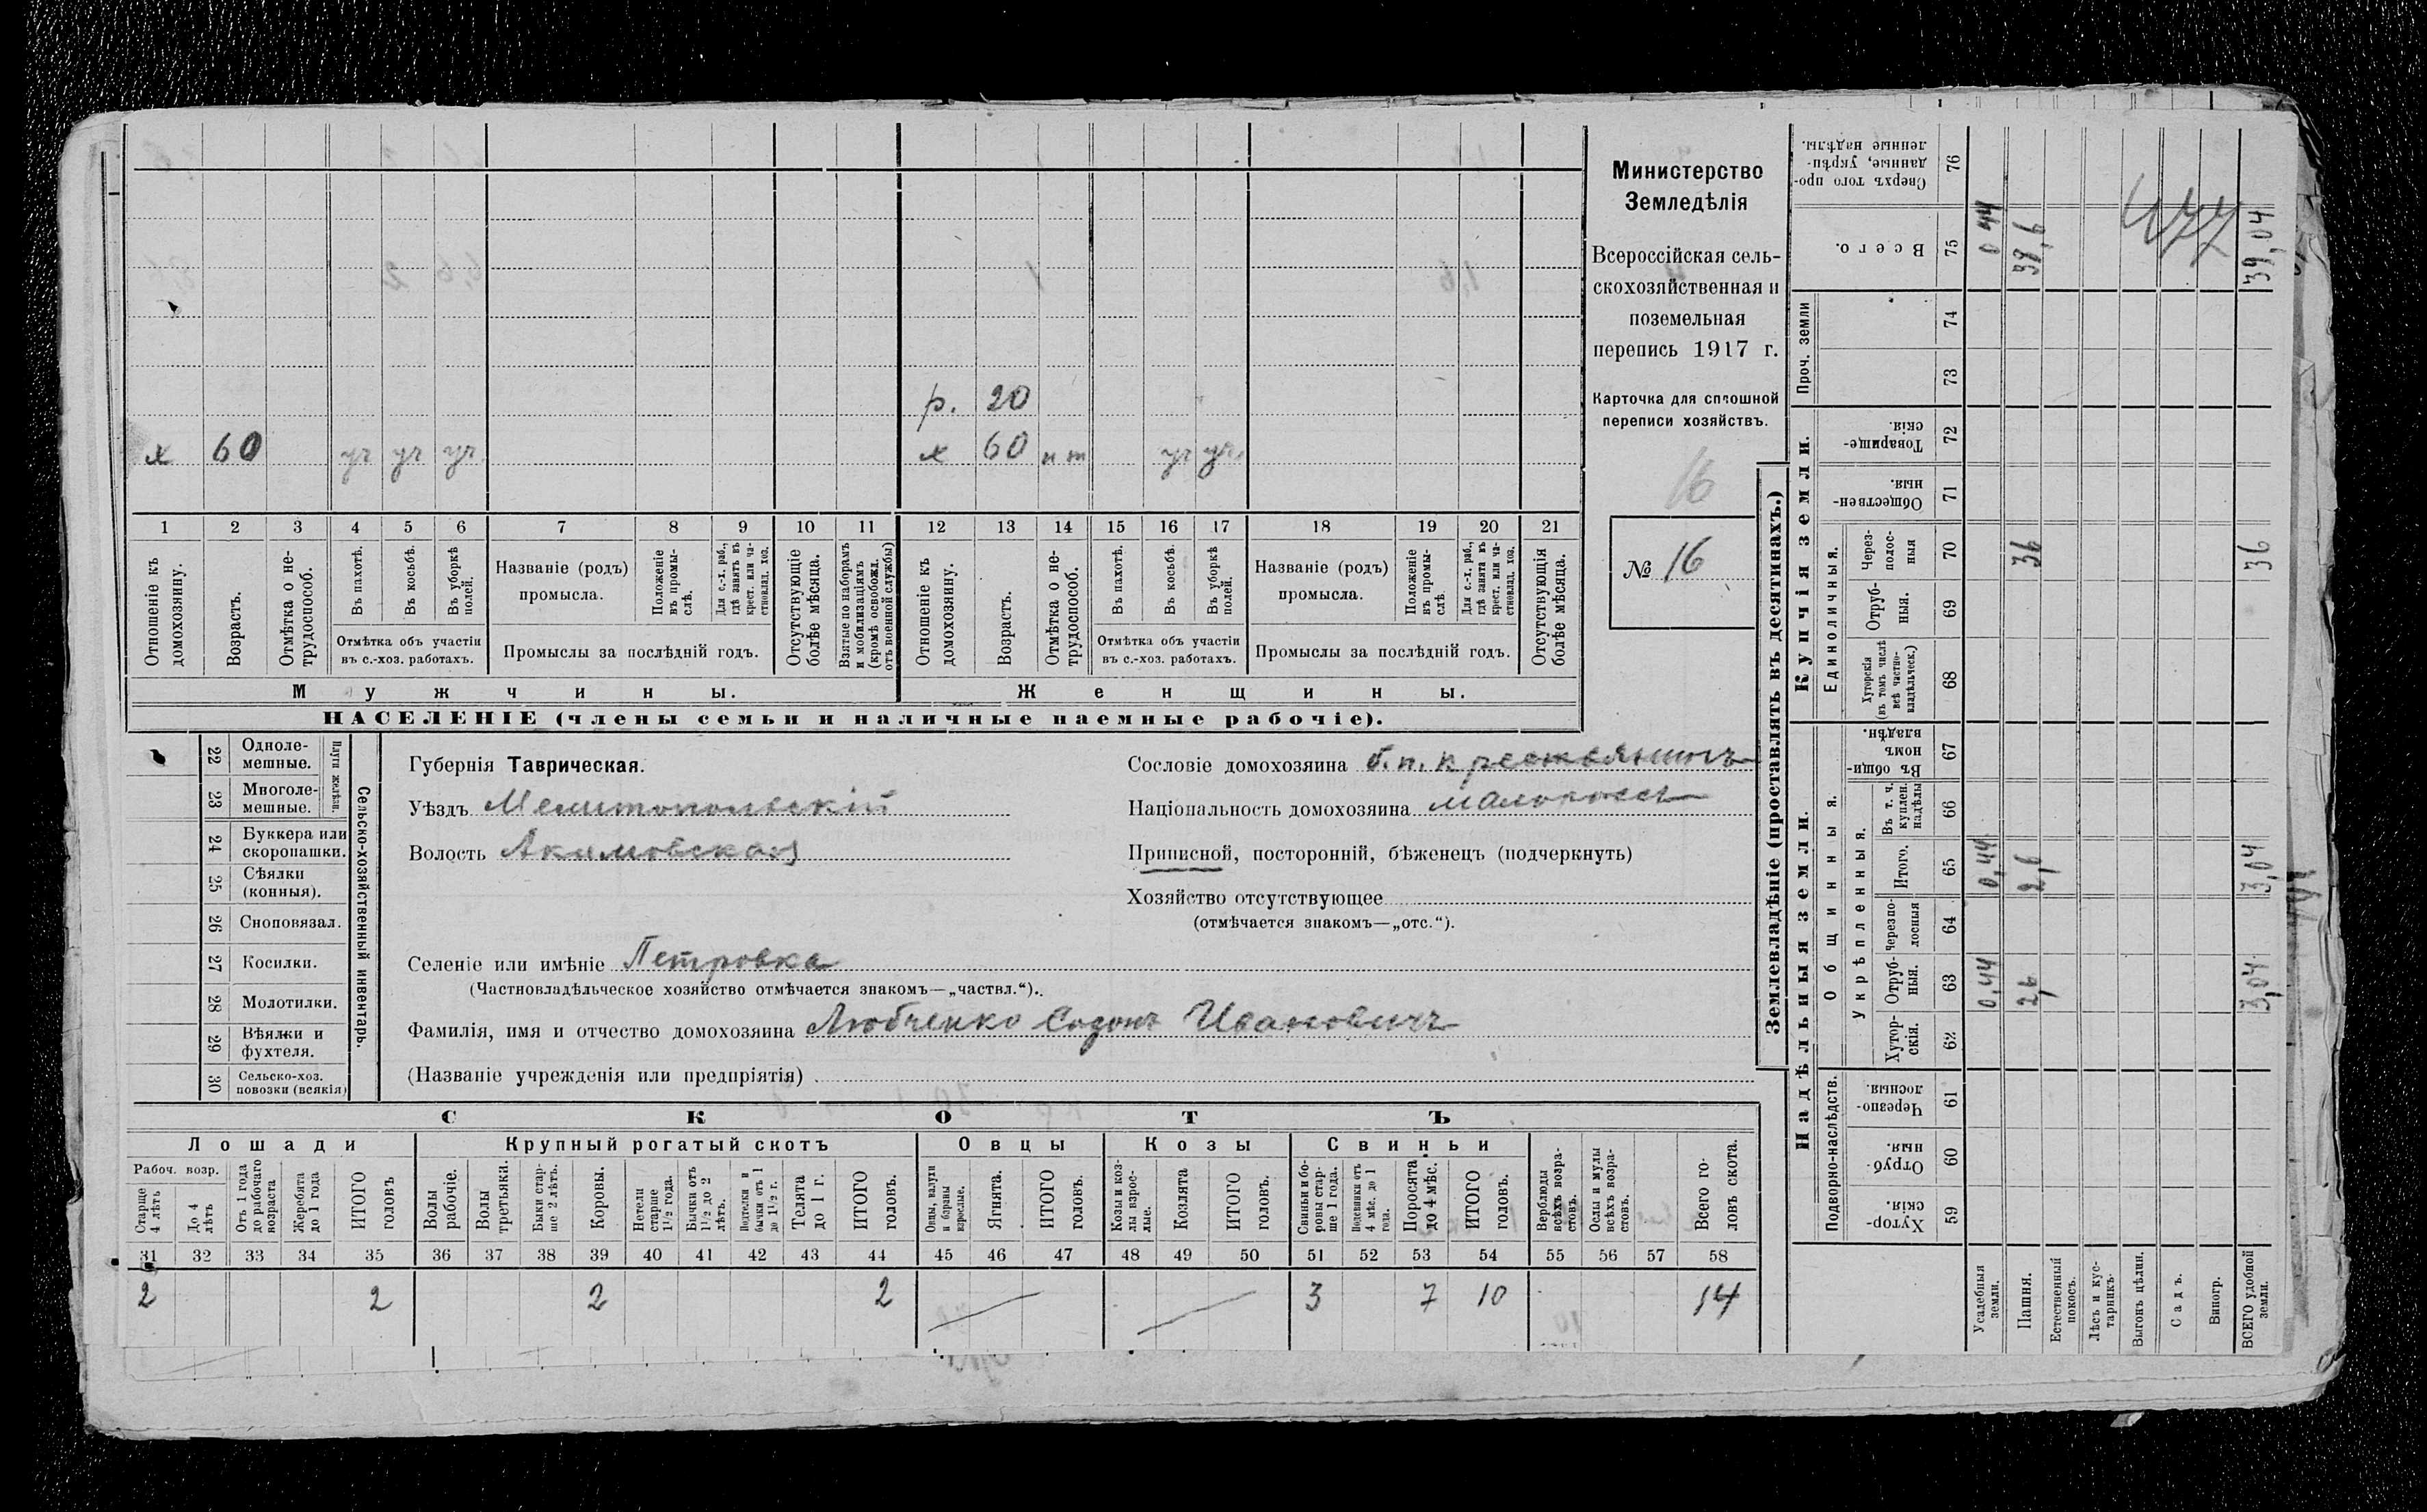 р. 20
х 60 уч уч уч х 60 нт уч уч.
1 2 3 4 5 6 7 8 9 10 11 12 13 14 15 16 17 18 19 20 21
Отношеніе къ домохозяину.
Возрастъ.
Отмѣтка о нетрудоспособ.
Въ пахотѣ.
Въ косьбѣ.
Въ уборкѣ полей.
Отмѣтка объ участіи
въ с.-хоз. работахъ.
Названіе (родъ)
промысла.
Положеніе въ промыслѣ.
Для с.-х. раб., гдѣ занятъ въ крест. или частновлад. хоз.
Промыслы за послѣдній годъ.
Отсутствующіе болѣе мѣсяца.
Взятые по наборамъ и мобилизаціямъ (кромѣ освобожд. отъ военной службы)
Отношеніе къ домохозяину.
Возрастъ.
Отмѣтка о нетрудоспособ.
Въ пахотѣ.
Въ косьбѣ.
Въ уборкѣ полей.
Отмѣтка объ участіи
въ с.-хоз. работахъ.
Названіе (родъ)
промысла.
Положеніе въ промыслѣ.
Для с.-х. раб., гдѣ занята въ крест. или частновлад. хоз.
Промыслы за послѣдній годъ.
Отсутствующія болѣе мѣсяца.
Мужчины. Женщины.
НАСЕЛЕНІЕ (члены семьи и наличные наемные рабочіе).
Министерство
Земледѣлія
Всероссійская сель-
скохозяйственная и
поземельная
перепись 1917 г.
Карточка для сплошной
переписи хозяйствъ.
16
№ 16
22 Одноле-
мешные.
23 Многоле-
мешные.
Плуги желѣзн.
24 Буккера или
скоропашки.
25 Сѣялки
(конныя).
26 Сноповязал.
27 Косилки.
28 Молотилки.
29 Вѣялки и
фухтеля.
30 Сельско-хоз.
повозки (всякія)
Сельско-хозяйственный инвентарь.
Губернія Таврическая.
Уѣздъ Мелитопольскій
Волость Акимовская
Сословіе домохозяина б.п. крестьянинъ
Національность домохозяина малороссъ
Приписной, посторонній, бѣженецъ (подчеркнуть)
Хозяйство отсутствующее
(отмѣчается знакомъ—„отс.“).
Селеніе или имѣніе Петровка
(Частновладѣльческое хозяйство отмѣчается знакомъ—„частвл.“).
Фамилія, имя и отчество домохозяина Любченко Созонъ Ивановичъ
(Названіе учрежденія или предпріятія)
СКОТЪ
Лошади Крупный рогатый скотъ Овцы Козы Свиньи
Рабоч. возр.
Старше 4 лѣтъ
До 4 лѣтъ
Отъ 1 года до рабочаго возраста
Жеребята до 1 года
ИТОГО головъ
Волы рабочіе.
Волы третьяки.
Быки старше 2 лѣтъ.
Коровы.
Нетели старше 1 1/2 года.
Бычки отъ 1 1/2 до 2 лѣтъ.
Подтелки и бычки отъ 1 до 1 1/2 г.
Телята до 1 г.
ИТОГО головъ.
Овцы, валухи и бараны взрослые.
Ягнята.
ИТОГО головъ.
Козы и козлы взрослые.
Козлята
ИТОГО головъ.
Свиньи и боровы старше 1 года.
Подсвинки отъ 4 мѣс. до 1 года.
Поросята до 4 мѣс.
ИТОГО головъ.
Верблюды всѣхъ возрастовъ.
Ослы и мулы всѣхъ возрастовъ.
Всего головъ скота.
31 32 33 34 35 36 37 38 39 40 41 42 43 44 45 46 47 48 49 50 51 52 53 54 55 56 57 58
2 2 2 2 3 7 10 14
Землевладѣніе (проставлять въ десятинахъ.)
Надѣльныя земли. Купчія земли. Проч. земли
Подворно-наслѣдств. Общинныя. Единоличныя.
Укрѣпленныя.
Хуторскія. 59
Отрубныя. 60
Черезполосныя. 61
Хуторскія. 62
Отрубныя. 63
Черезполосныя 64
Итого. 65
Въ т. ч. куплен. надѣлы 66
Въ общинномъ владѣн. 67
Хуторскія (въ томъ числѣ всѣ частновладѣльческ.) 68
Отрубныя. 69
Черезполосныя 70
Общественныя. 71
Товарищескія. 72
73
74
Всего. 75
Сверхъ того проданные, укрѣпленные надѣлы. 76
Усадебныя земли. 0,44 0,44 0 44
Пашня. 2,6 2,6 36 38,6
Естественный покосъ.
Лѣсъ и кустарникъ.
Выгонъ цѣлин.
Садъ.
Виногр.
ВСЕГО удобной земли. 3,04 3,04 36 39,04
477